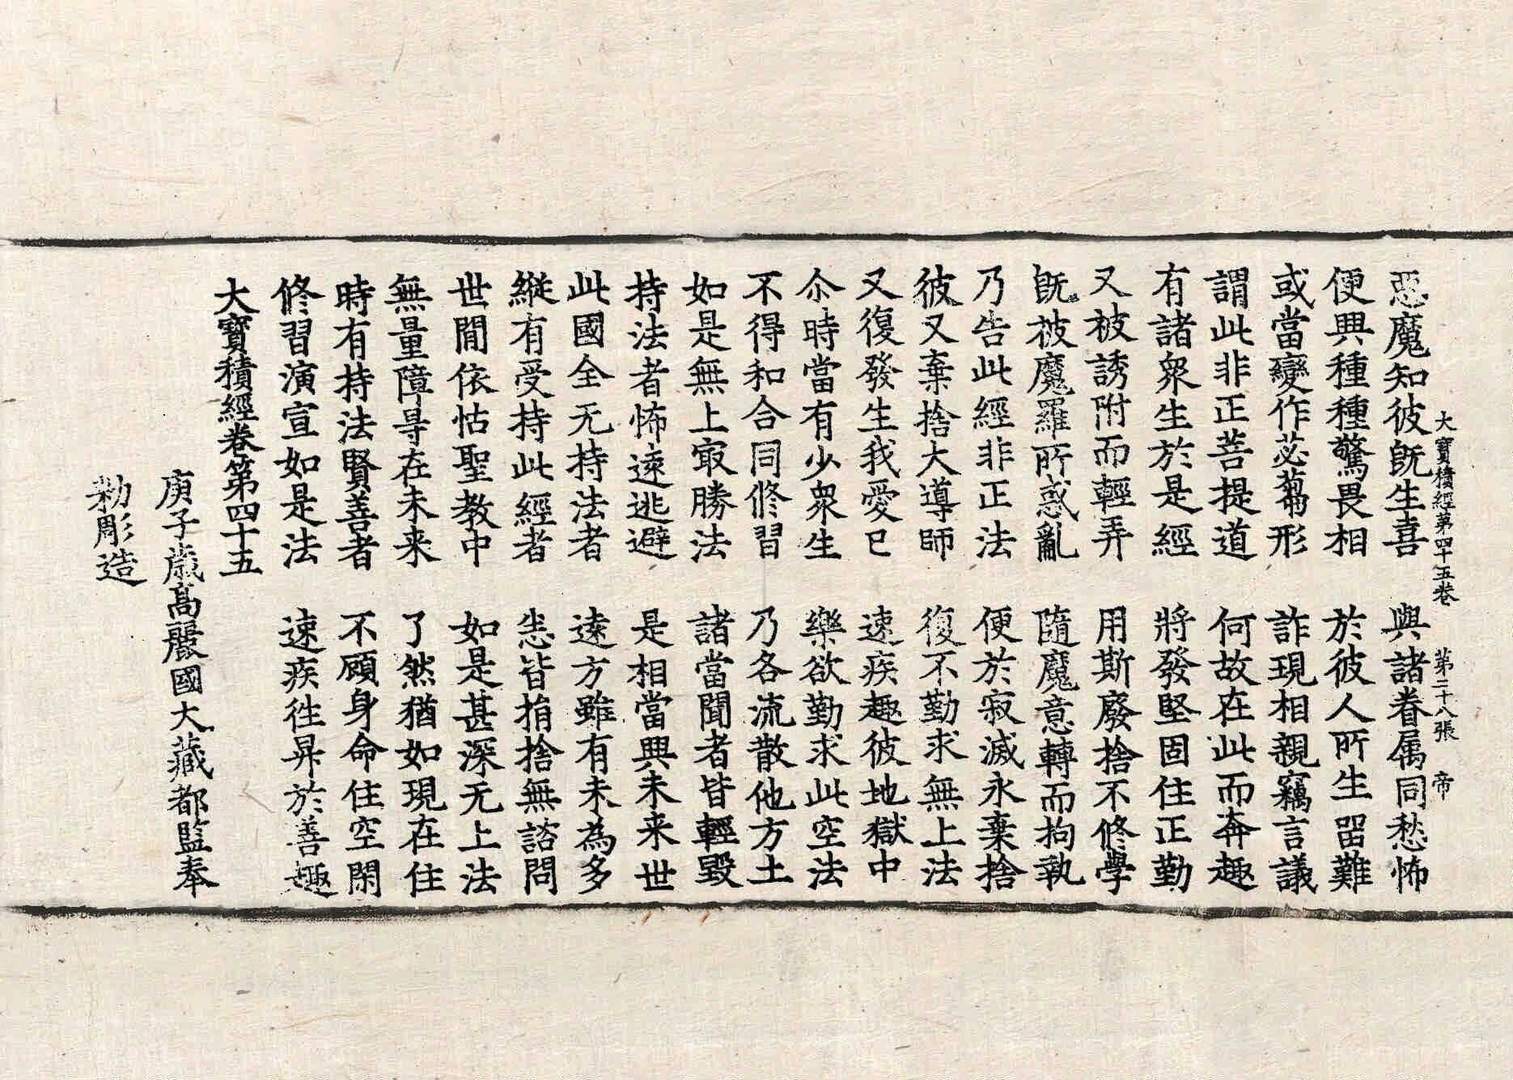 大寶積經第四十五卷 第二十八張 帝
惡魔知彼旣生喜 與諸眷属同愁怖
便興種種驚畏相 於彼人所生留難
或當變作苾蒭形 詐現相親竊言議
謂此非正菩提道 何故在此而奔趣
有諸衆生於是經 將發堅固住正勤
又被誘附而輕弄 用斯廢捨不修學
旣被魔羅所惑亂 隨魔意轉而拘執
乃告此經非正法 便於寂滅永棄捨
彼又棄捨大導師 復不勤求無上法
又復發生我愛已 速疾趣彼地獄中
尒時當有少衆生 樂欲勤求此空法
不得和合同修習 乃各流散他方土
如是無上寂勝法 諸當聞者皆輕毀
持法者怖遠逃避 是相當興未来世
此國全无持法者 遠方雖有未為多
縱有受持此經者 恙皆捐捨無諮問
世間依怙聖教中 如是甚深无上法
無量障㝵在未来 了然猶如現在住
時有持法賢善者 不顧身命住空閑
修習演宣如是法 速疾徃昇於善趣
大寶積經卷第四十五
庚子歲高麗國大藏都監奉
勅彫造